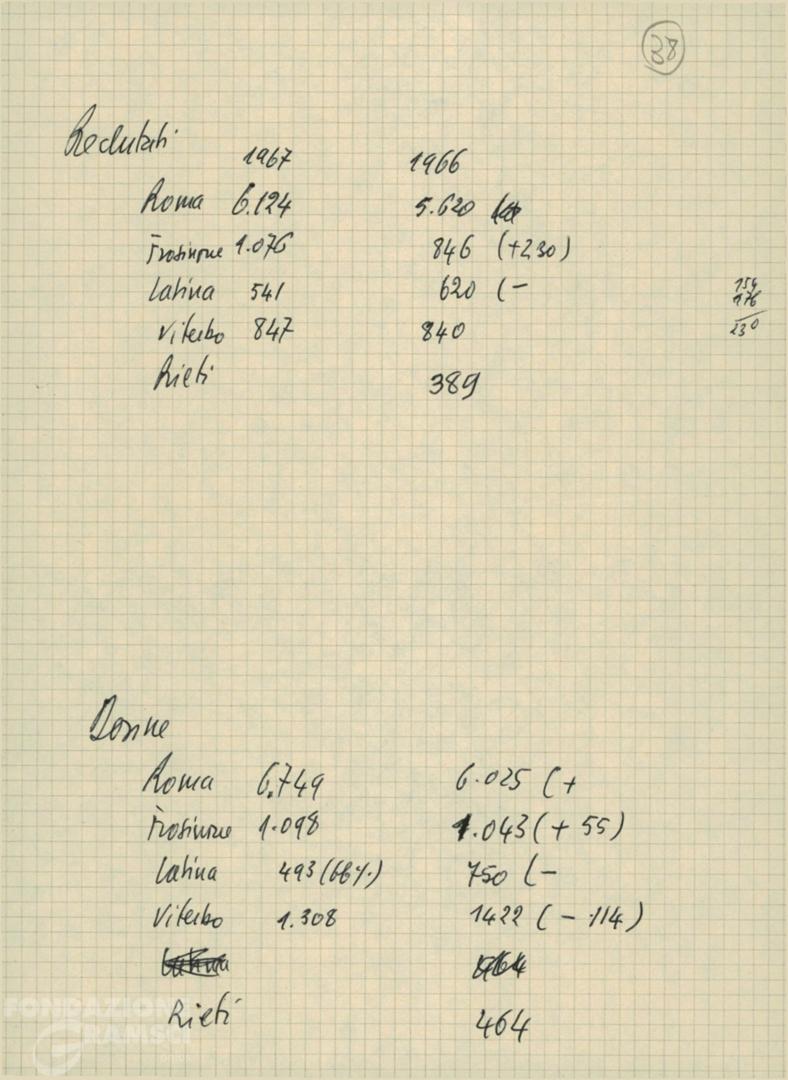 38
Reclutati
1967 1966
Roma 6.124 5.620
Frosinone 1.076 846 (+230)
Latina 541 620 (-
Viterbo 847 840
Rieti 389
154
176
230
Donne
Roma 6.749 6.025 (+
Frosinone 1.098 1.043 (+ 55)
Latina 493 (66%) 750 (-
Viterbo 1.308 1422 (- 114)
Latina 464
Rieti 464
FONDAZIONE
GRAMSCI